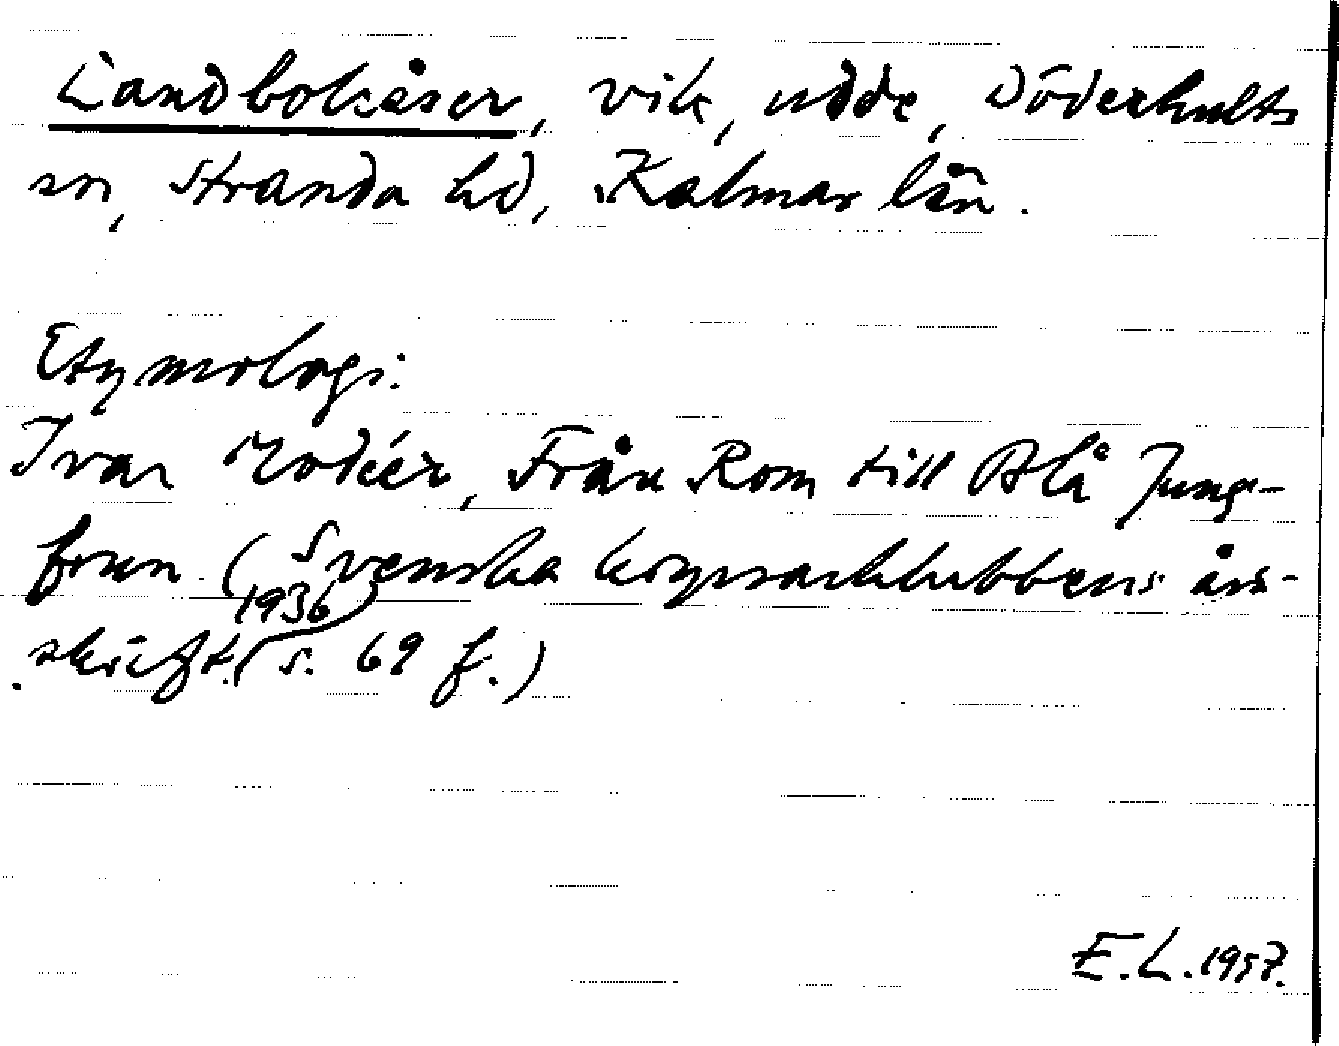 Landboksåser, vik, udde, Döderhults
sn, Stranda hd, Kalmar län.
Etymologi:
Ivar Modéer, Från Rom till Blå Jung-
frun. (Svenska kryssarklubbens års-
skrift. 1936 (s. 69 f.)
E.L. 1957.